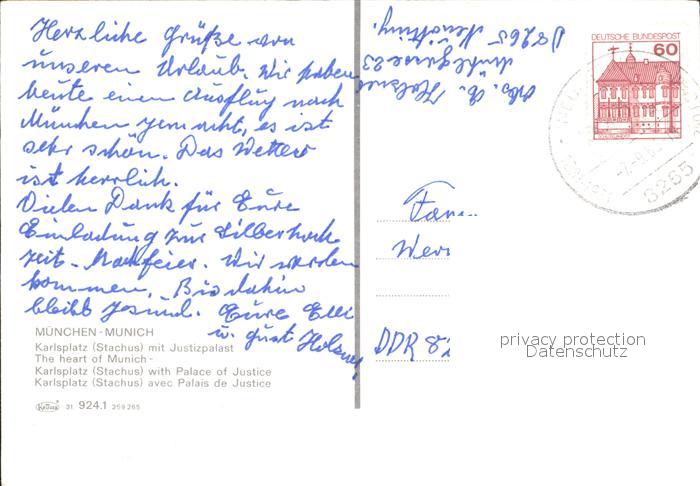 Herzliche Grüße von
unseren Urlaub. Wir haben
heute einen Ausflug nach
München gemacht, es ist
sehr schön. Das Wetter
ist herrlich.
Vielen Dank für Eure
Einladung zur Silberhoch
zeit - Nachfeier. Wir werden
kommen. Bis dahin
bleibt gesund. Eure Elli
u. Gust Holzner
MÜNCHEN - MUNICH
Karlsplatz (Stachus) mit Justizpalast
The heart of Munich -
Karlsplatz (Stachus) with Palace of Justice
Karlsplatz (Stachus) avec Palais de Justice
Krüger 31 924.1 259 265
D 8265 Neuötting.
Abs. E. Holzner
DEUTSCHE BUNDESPOST
60
8265
Fam
Wer
DDR 82
privacy protection
Datenschutz